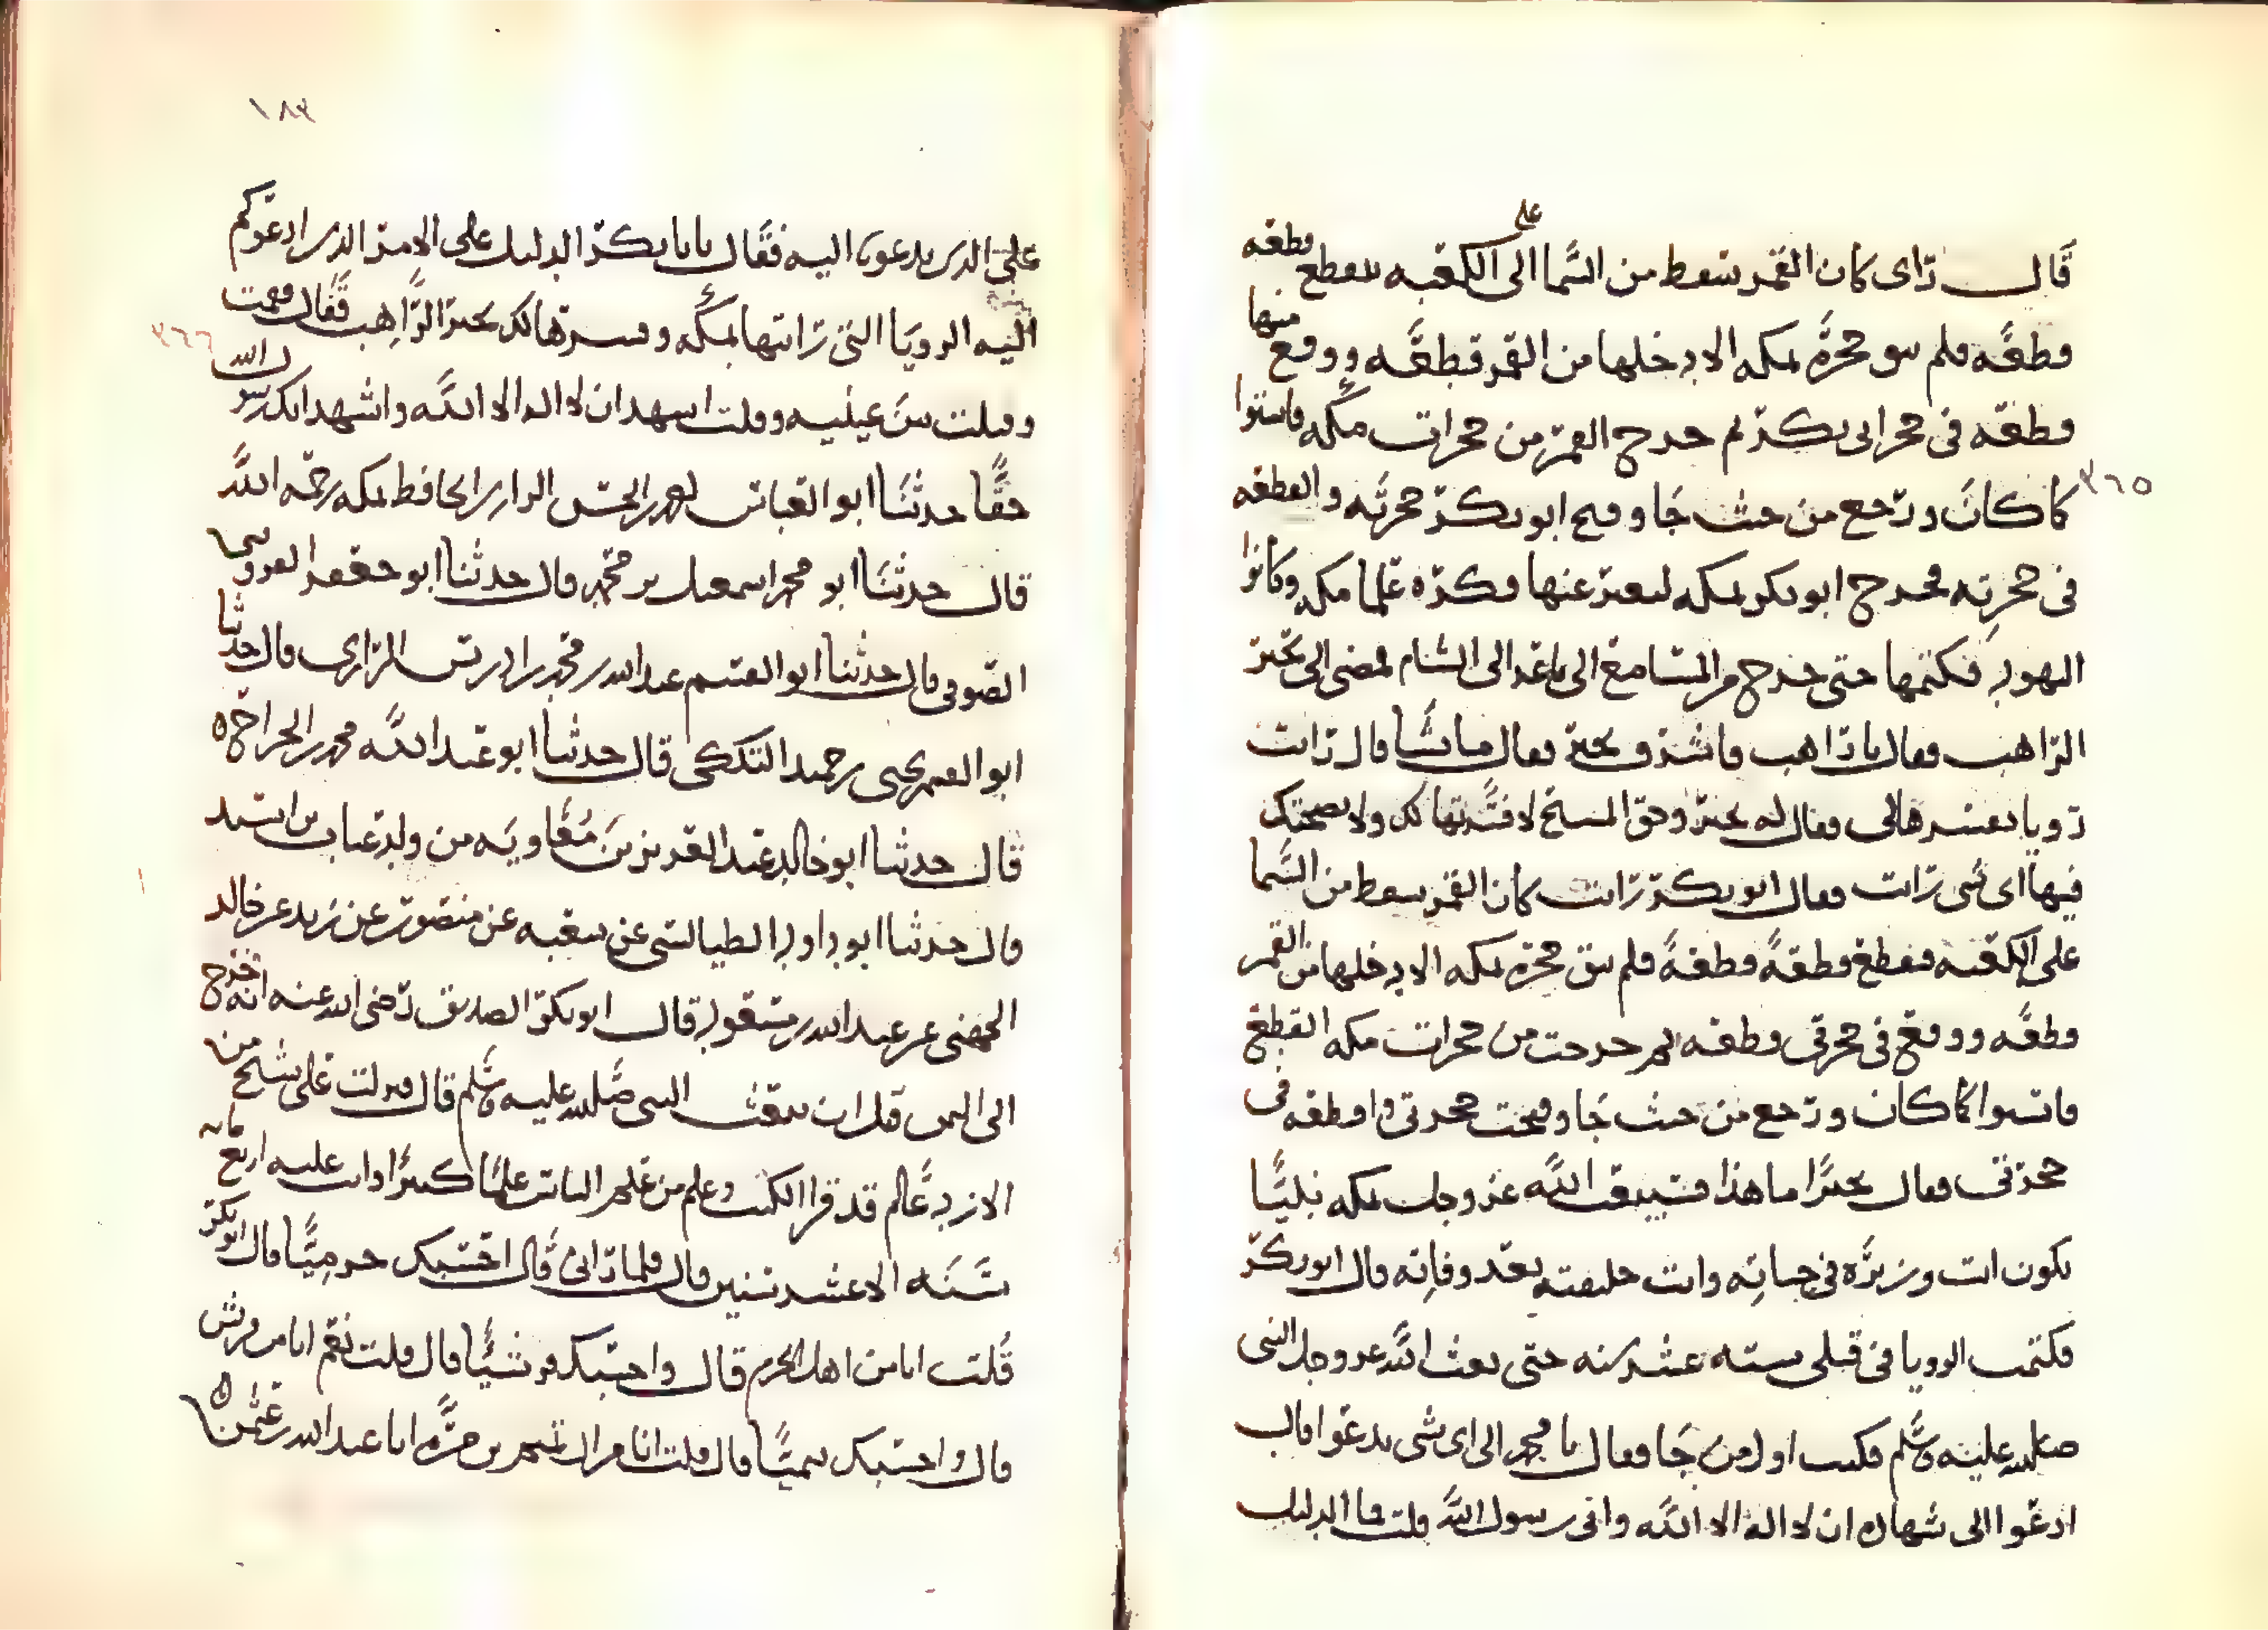 قال رأى كان القمر سقط من السما الى على الكعبه فتقطع قطعه
قطعه فلم يبق حجرة بمكه الا دخلها من القمر قطعه ووقع منها
قطعه في حجر ابى بكر ثم خرج القمر من حجرات مكه فاستوا
كما كان ورجع من حيث جا وفتح ابو بكر حجرته والقطعه
٣٦٥
في حجرته فخرج ابو بكر بمكه ليعبر عنها فكره علما مكه وكانوا
اليهود فكتمها حتى خرج الى الشام فمضى الى بحير
الراهب فقال يا راهب فاشرف بحير فقال ما تشا قال رايت
رويا تفسرها لى فقال له بحير وحق المسيح لافسرنها لك ولا نصحتك
فيها اى شى رايت فقال ابو بكر رايت كان القمر سقط من السما
على الكعبه فتقطع قطعة قطعة فلم يبق حجرة بمكه الا دخلها من القمر
قطعه ووقع في حجرتى قطعه ثم خرجت من حجرات مكه القطع
فاستوا كما كان ورجع من حيث جا وفتحت حجرتى والقطعه في
حجرتى فقال بحيرا ما هذا فسيبعث الله عز وجل بمكه نبيا
تكون انت وزيره في حياته وانت خليفته بعد وفاته قال ابو بكر
فكتمت الرويا في قلبى سته عشر سنه حتى بعث الله عز وجل النبى
صلى الله عليه وسلم فكنت اول من جا فقال يا محمد الى اى شى تدعوا قال
ادعوا الى شهاده ان لا اله الا الله وانى رسول الله قلت فما الدليل
١٨٣
على الذى تدعونا اليه فقال يابا بكر الدليل على الامر الذى ادعوكم
اليه الرويا التى رايتها بمكه وفسرها لك بحير الراهب فقال فقمت
٣٦٦
وقبلت بين عينيه وقلت اشهد ان لا اله الا الله واشهد انك رسول الله
حقا حدثنا ابو العباس احمد بن الحسن الرازى الحافظ بمكه رحمه الله
قال حدثنا ابو محمد اسمعيل بن محمد قال حدثنا ابو جعفر القزوينى
الصوفى قال حدثنا ابو القسم عبد الله بن محمد بن ادريس الرازى قال حدثنا
ابو العمر يحيى بن حميد التككى قال حدثنا ابو عبد الله محمد بن الجراح ه
قال حدثنا ابو خالد عبد العزيز بن معاويه من ولد عتاب بن اسيد
قال حدثنا ابو داود الطيالسى عن شعبه عن منصور عن زيد عن خالد
الجهنى عن عبد الله بن مسعود قال ابو بكر الصديق رضى الله عنه انه خرج
الى اليمن قبل ان يبعث النبى صلى الله عليه وسلم قال فنزلت على شيخ من
الازد عالم قد قرا الكتب وعلم من علم الناس علما كثيرا واتت عليه اربع مايه
سنه الا عشر سنين قال فلما رانى قال احسبك حرميا قال ابو بكر
قلت انا من اهل الحرم قال واحسبك قرشيا قال قلت نعم انا من قريش
قال واحسبك تيميا قال قلت انا من ال تيم بن مرة انا عبد الله بن عثمن ه